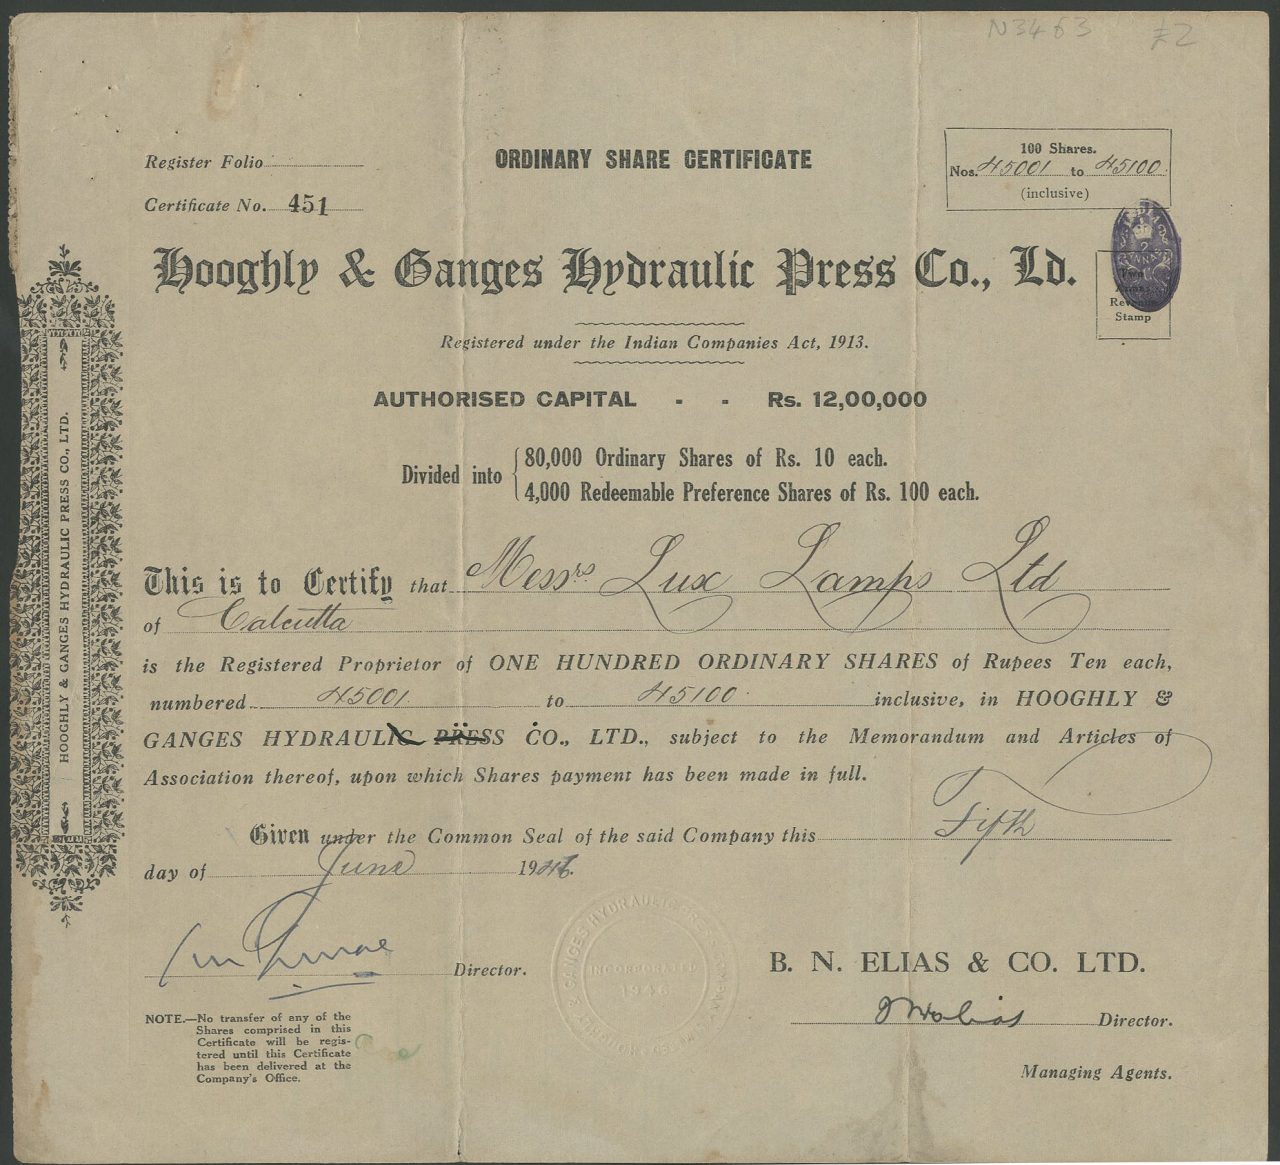 N3463 £2
Register Folio
ORDINARY SHARE CERTIFICATE
100 Shares.
Nos. 45001 to 45100.
(inclusive)
Certificate No. 451
Hooghly & Ganges Hydraulic Press Co., Ld.
2
Two
Annas
Revenue
Stamp
Registered under the Indian Companies Act, 1913.
AUTHORISED CAPITAL - - Rs. 12,00,000
Divided into
80,000 Ordinary Shares of Rs. 10 each.
4,000 Redeemable Preference Shares of Rs. 100 each.
This is to Certify that Messrs Lux Lamps Ltd
of Calcutta
is the Registered Proprietor of ONE HUNDRED ORDINARY SHARES of Rupees Ten each,
numbered 45001. to 45100. inclusive, in HOOGHLY &
GANGES HYDRAULIC PRESS CO., LTD., subject to the Memorandum and Articles of
Association thereof, upon which Shares payment has been made in full.
Given under the Common Seal of the said Company this Fifth
day of June 194
Director.
INCORPORATED
1946
B. N. ELIAS & CO. LTD.
Director.
Managing Agents.
NOTE.—No transfer of any of the
Shares comprised in this
Certificate will be regis-
tered until this Certificate
has been delivered at the
Company's Office.
HOOGHLY & GANGES HYDRAULIC PRESS CO., LTD.